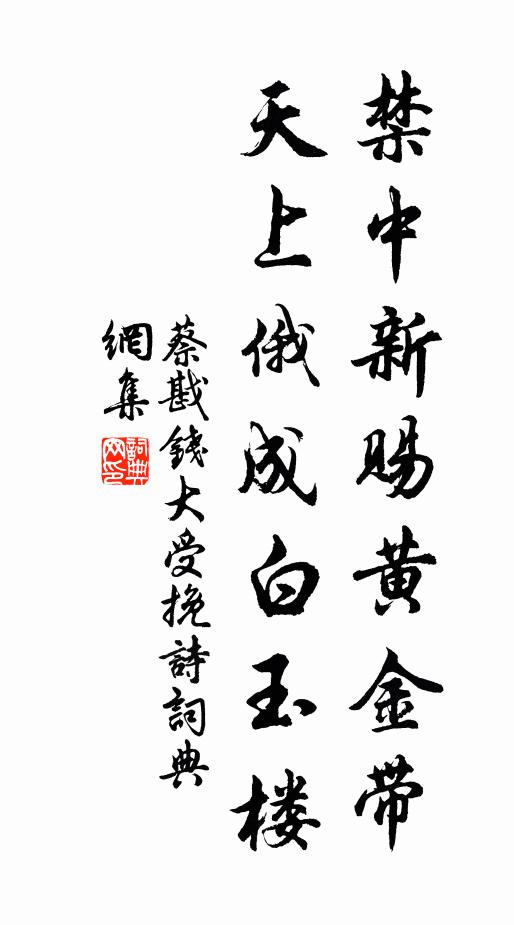 禁中新赐黄金带
天上俄成白玉楼
蔡戡錢大受挽詩詞典
網集
詞典网印